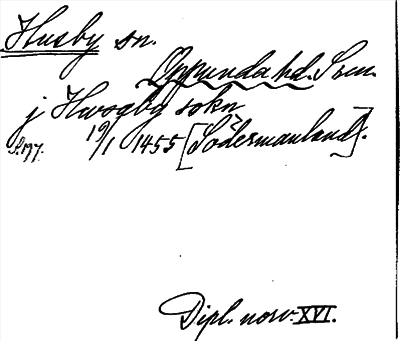 Husby sn.
Oppunda hd. Srm.
j Hwsgby sokn
S. 177. 19/1 1455 [Södermanland].
Dipl. norv. XVI.